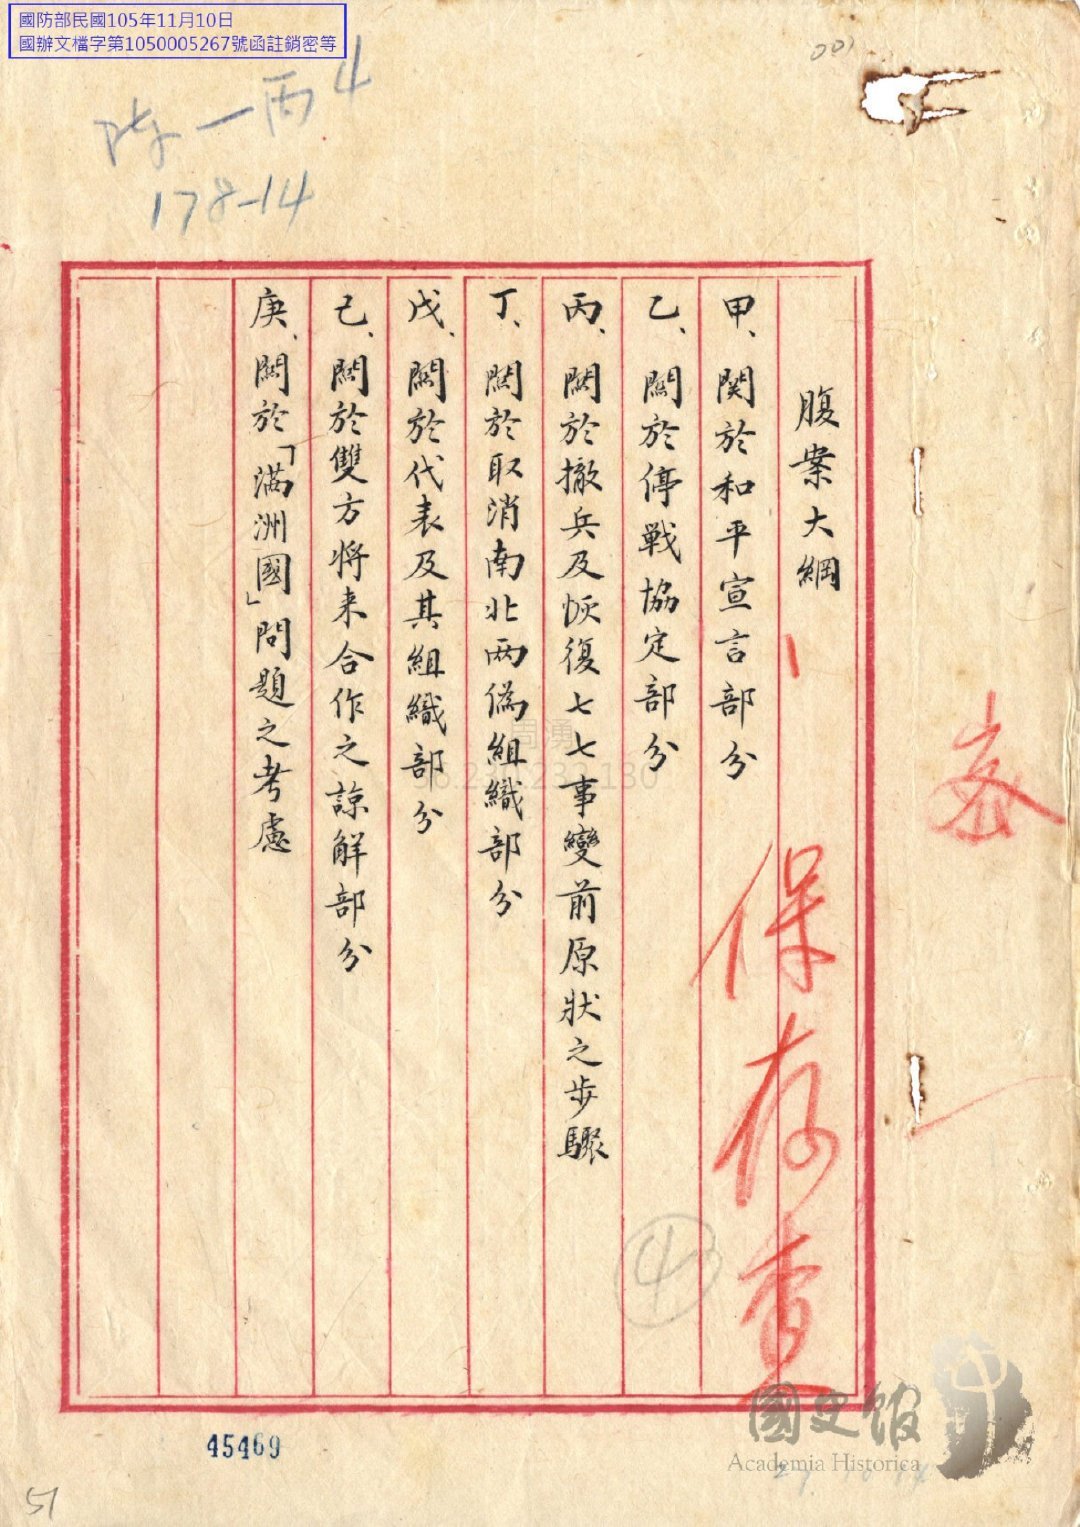 國防部民國105年11月10日
國辦文檔字第1050005267號函註銷密等
001
陳一丙4
178-14
腹案大綱
甲、関於和平宣言部分
乙、關於停戰協定部分
丙、關於撤兵及恢復七七事變前原狀之步驟
丁、關於取消南北兩偽組織部分
戊、關於代表及其組織部分
己、關於雙方將来合作之諒解部分
庚、關於「满洲國」問題之考慮
密
保存查
④
國史館
Academia Historica
45469
51